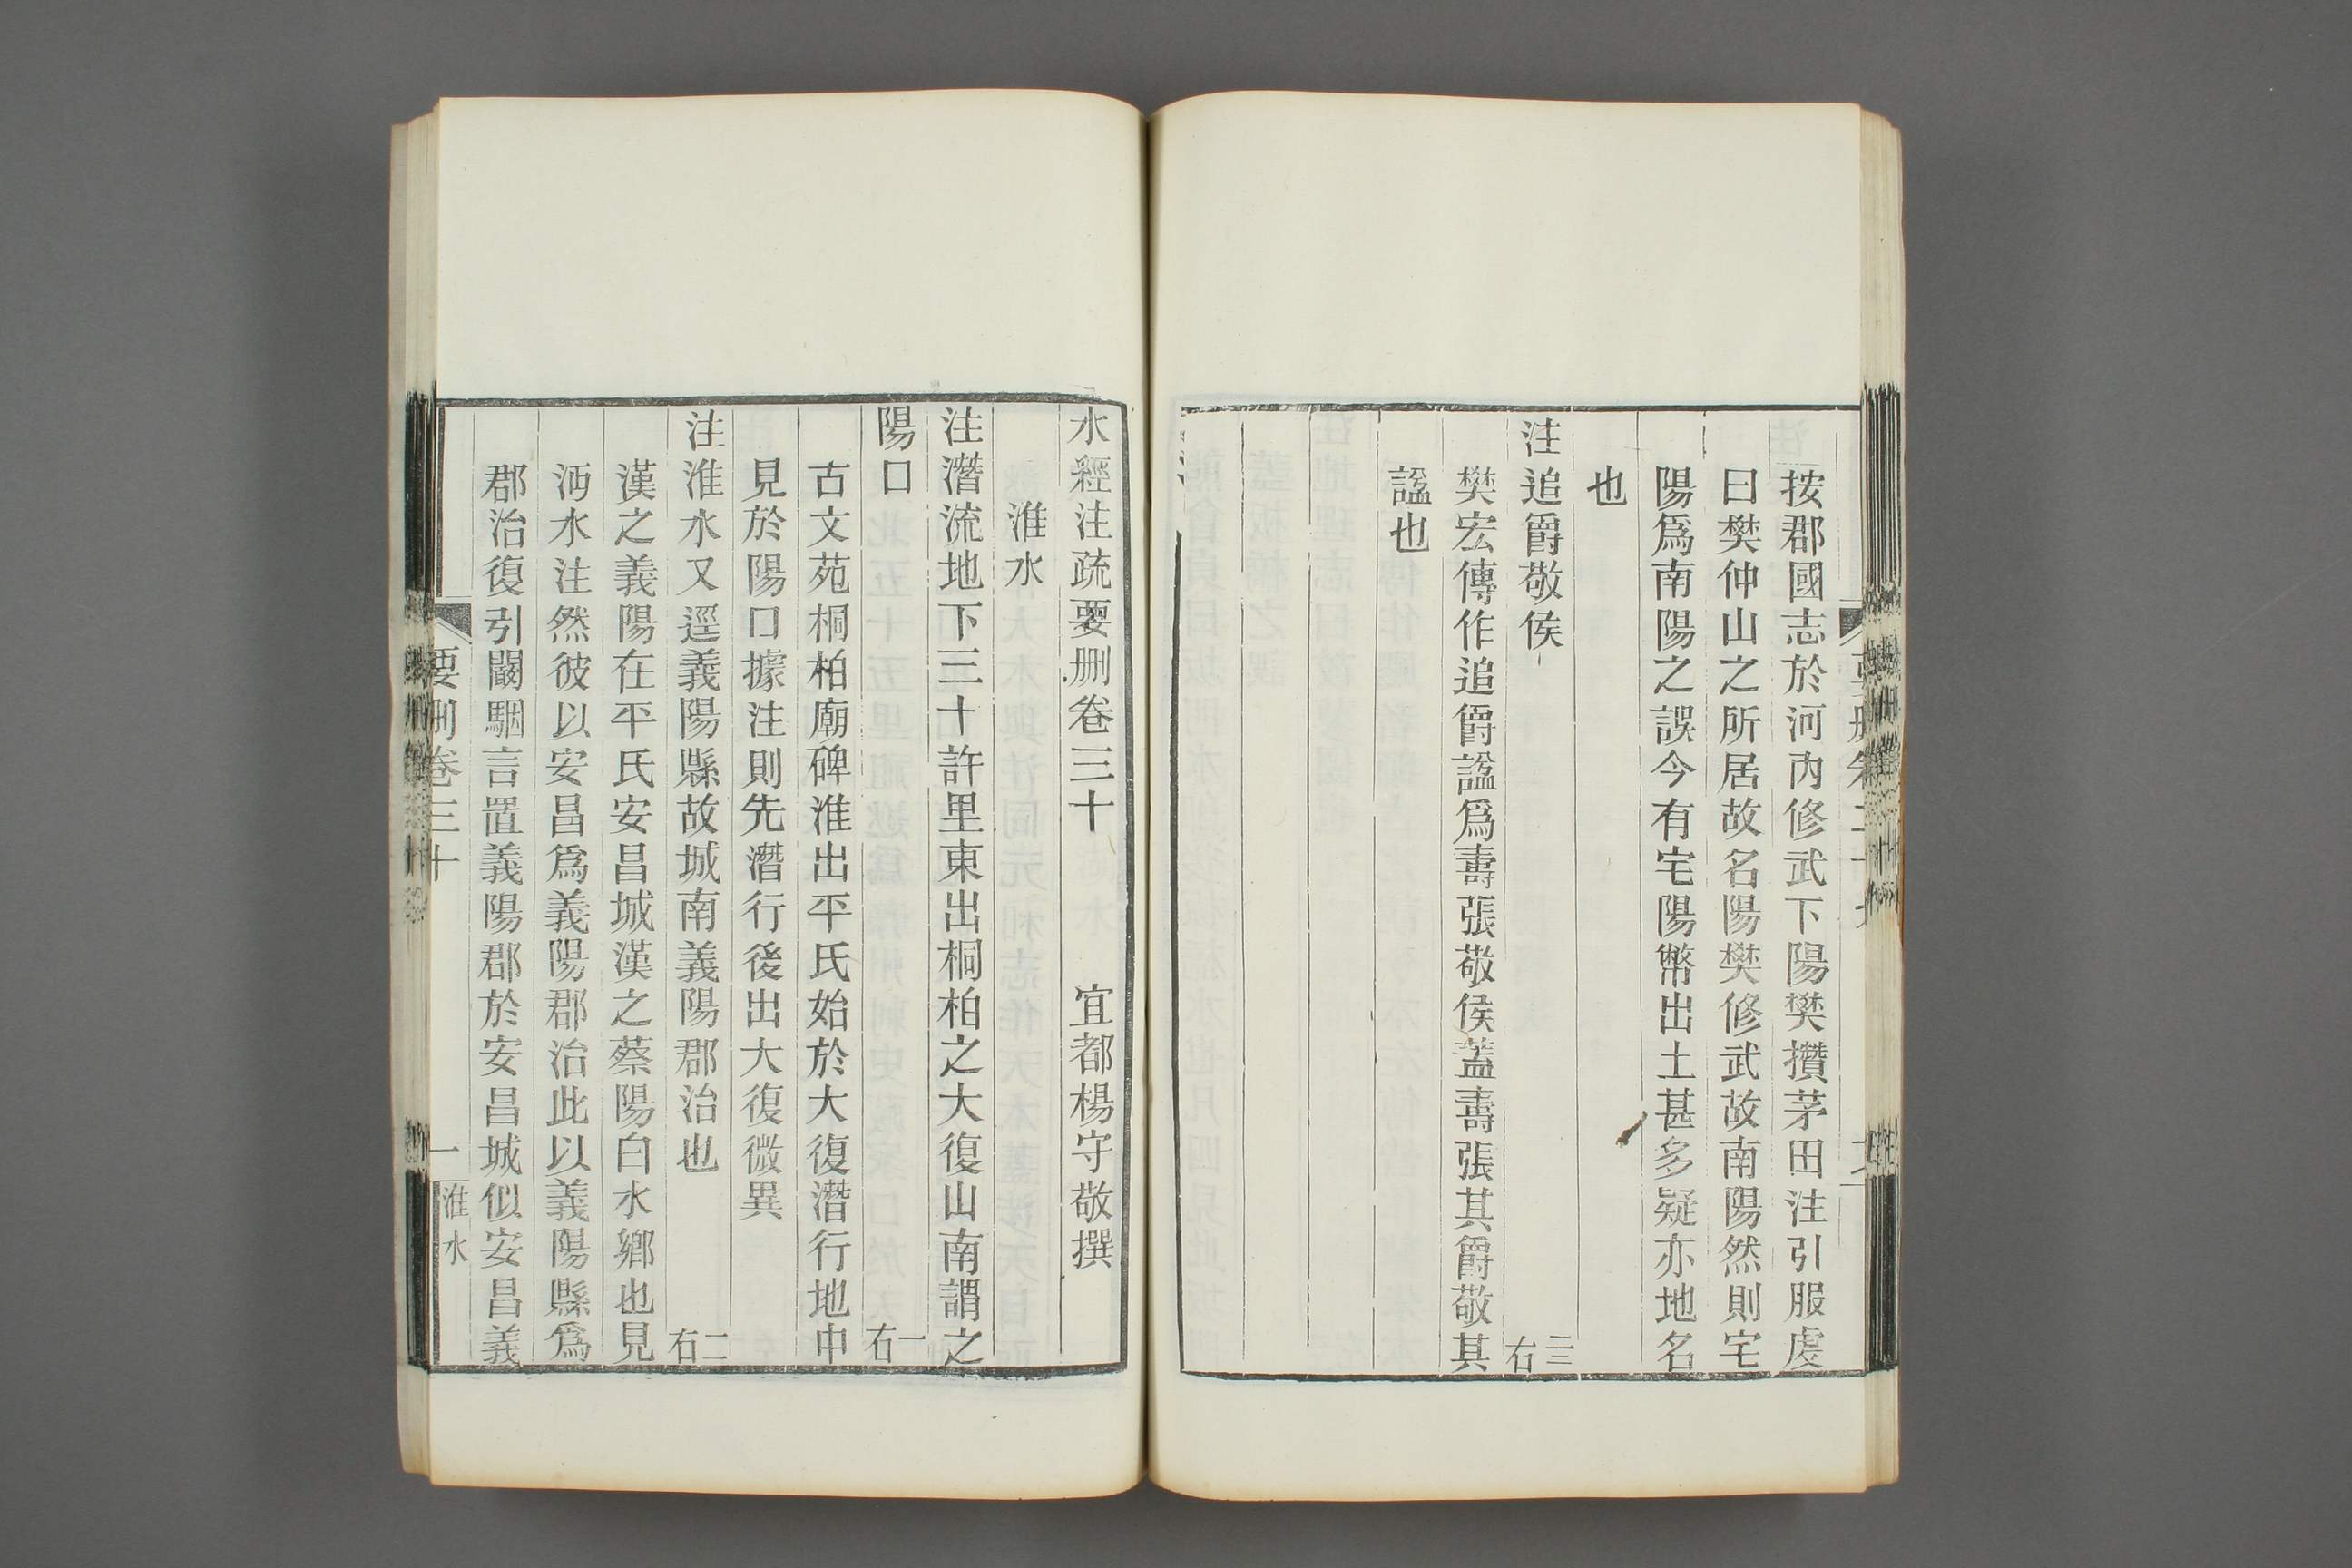 按郡國志於河內修武下陽樊攢茅田注引服虔
曰樊仲山之所居故名陽樊修武故南陽然則宅
陽爲南陽之誤今有宅陽幣出土甚多疑亦地名
也
注追爵敬侯 三右
樊宏傳作追爵謚爲壽張敬侯蓋壽張其爵敬其
謚也
水經注疏要删卷三十 宜都楊守敬撰
淮水
注潛流地下三十許里東出桐柏之大復山南謂之
陽口 一右
古文苑桐柏廟碑淮出平氏始於大復潛行地中
見於陽口據注則先潛行後出大復微異
注淮水又逕義陽縣故城南義陽郡治也 二右
漢之義陽在平氏安昌城漢之蔡陽白水鄉也見
沔水注然彼以安昌爲義陽郡治此以義陽縣爲
郡治復引闞駰言置義陽郡於安昌城似安昌義
要刪卷三十 一 淮水